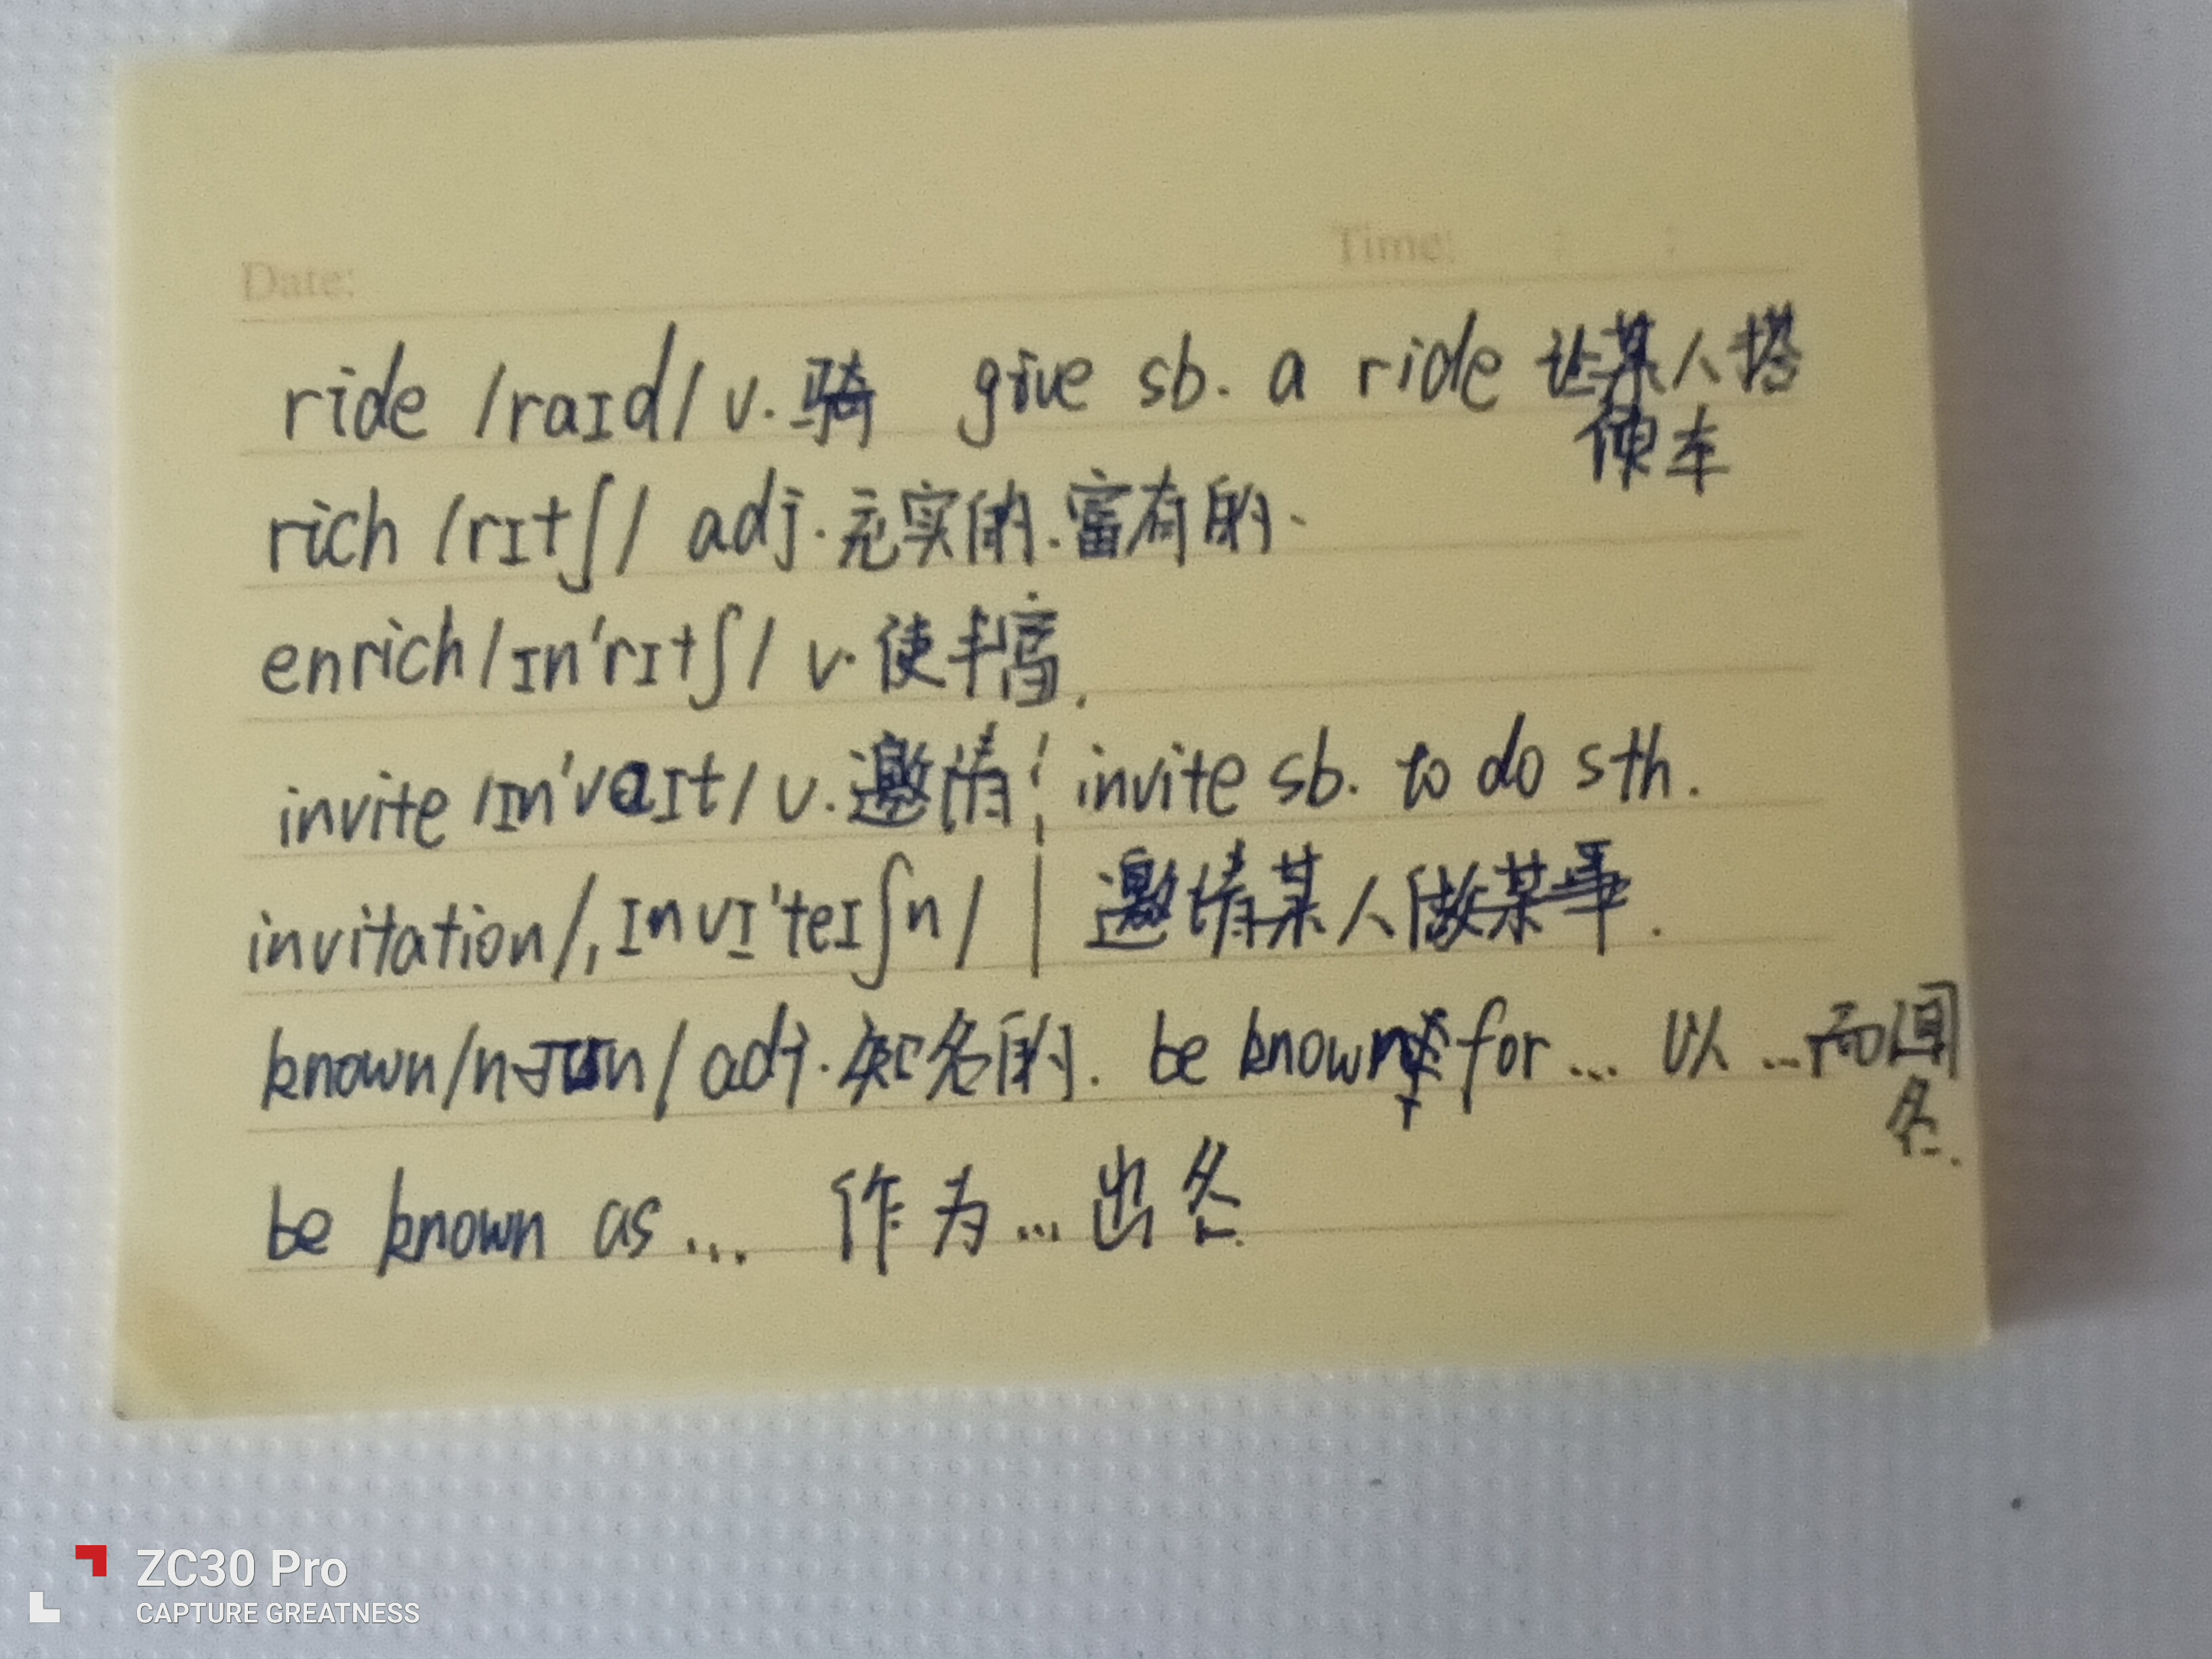 Date:
Time: : :
ride /raɪd/ v. 骑 give sb. a ride 让某人搭
便车
rich /rɪtʃ/ adj. 充实的.富有的.
enrich /ɪn'rɪtʃ/ v. 使丰富.
invite /ɪn'vaɪt/ v. 邀请 invite sb. to do sth.
invitation /ˌɪnvɪ'teɪʃn/ 邀请某人做某事.
known / adj. 知名的. be known for... 以...而闻
名.
be known as... 作为...出名.
ZC30 Pro
CAPTURE GREATNESS